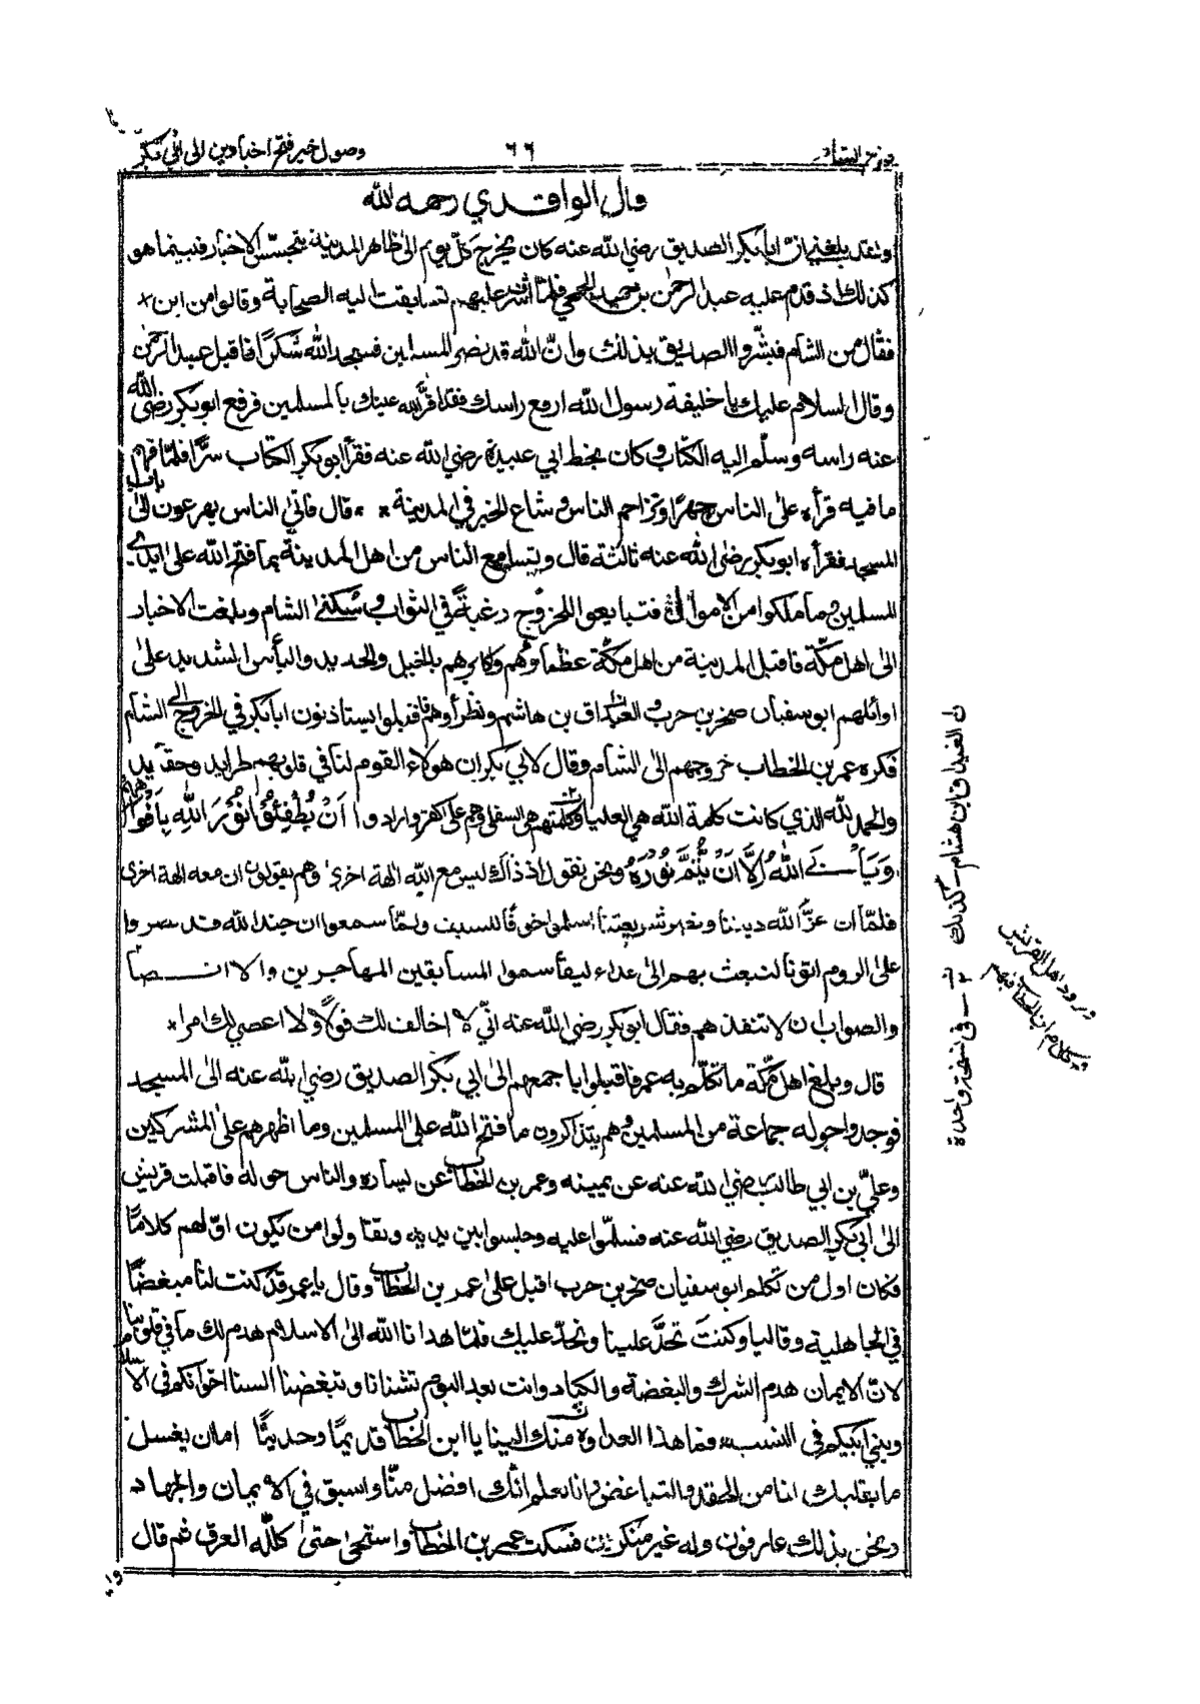 وصول خبر فتح اجنادين الى ابي بكر
٦٦
قال الواقدي رحمه الله
ولقد بلغني ان ابا بكر الصديق رضي الله عنه كان يخرج كلّ يوم الى ظاهر المدينة يتجسّس الاخبار فبينما هو
كذلك اذ قدم عليه عبد الرحمٰن بن حميد الجمحي فلمّا اشرف عليهم تسابقت اليه الصحابة وقالوا من اين
فقال من الشام فبشّروا الصديق بذلك وانّ الله قد نصر المسلمين فسجد لله شكرًا فاقبل عبد الرحمٰن
وقال السلام عليك يا خليفة رسول الله ارفع راسك فقد اقرّ الله عينك بالمسلمين فرفع ابو بكر رضي الله
عنه راسه وسلّم اليه الكتاب وكان بخط ابي عبيدة رضي الله عنه فقرأ ابو بكر الكتاب سرًّا فلمّا فهم
ما فيه قرأه على الناس جهرًا وتزاحم الناس وشاع الخبر في المدينة قال فاتى الناس يهرعون الى باب
المسجد فقرأه ابو بكر رضي الله عنه ثالثة قال وتسامع الناس من اهل المدينة بما فتح الله على ايدي
المسلمين وما ملكوا من الاموال فتبايعوا للخروج رغبةً في الثواب وسكنى الشام وبلغت الاخبار
الى اهل مكّة فاقبل المدينة من اهل مكّة عظماؤهم وكابرهم بالخيل والحديد والبأس الشديد على
اوائلهم ابو سفيان صخر بن حرب والغيداق بن هاشم ونظراؤهم فاقبلوا يستاذنون ابا بكر في الخروج الى الشام
فكره عمر بن الخطاب خروجهم الى الشام وقال لابي بكر ان هولاء القوم لنا في قلوبهم طرايد وحقايد
والحمد لله الذي كانت كلمة الله هي العليا وكلمتهم هي السفلى وهم على كفرهم وارادوا اَنْ يُّطْفِئُوْا نُوْرَ اللهِ بِاَفْوَاهِهِمْ
وَيَأْبَى اللهُ اِلَّا اَنْ يُّتِمَّ نُوْرَهُ ونحن نقول اذ ذاك ليس مع الله الهة اخرى وهم يقولون ان معه الهة اخرى
فلمّا ان عزّ الله ديننا ونصر شريعتنا اسلموا خوفًا للسيف ولمّا سمعوا ان جند الله قد نصروا
على الروم اتونا لنبعث بهم الى الاعداء ليقاسموا السابقين المهاجرين والانصار
والصواب ان لا تنفذهم فقال ابو بكر رضي الله عنه انّي لا اخالف لك قولًا ولا اعصي لك امرا
قال وبلغ اهل مكّة ما تكلّم به عمر فاقبلوا باجمعهم الى ابي بكر الصديق رضي الله عنه الى المسجد
فوجدوا حوله جماعة من المسلمين وهم يتذاكرون ما فتح الله على المسلمين وما اظهرهم على المشركين
وعليّ بن ابي طالب رضي الله عنه عن يمينه وعمر بن الخطاب عن يساره والناس حوله فاقبلت قريش
الى ابي بكر الصديق رضي الله عنه فسلّموا عليه وجلسوا بين يديه وتقاولوا من يكون اوّلهم كلامًا
فكان اول من تكلم ابو سفيان صخر بن حرب اقبل على عمر بن الخطاب وقال يا عمر قد كنت لنا مبغضًا
في الجاهلية وقاليا وكنتَ تحدّ علينا ونحدّ عليك فلمّا هدانا الله الى الاسلام هدم لك ما في قلوبنا
لانّ الايمان هدم الشرك والبغضة والكياد وانت بعد اليوم تشنانا وتبغضنا السنا اخوانكم في الاسلام
وبني ابيكم في النسب فما هذا العداوة منك الينا يا ابن الخطاب قديمًا وحديثًا اما ان يغسل
ما بقلبك لنا من الحقد والتباغض وانا نعلم انّك افضل منّا واسبق في الايمان والجهاد
ونحن بذلك عارفون وله غير منكرين فسكت عمر بن الخطاب واستحيٰ حتى كلّله العرق ثم قال
وا
كذلك في نسخة واحدة
ورود اهل القريش
وكلام ابن الخطاب فيهم